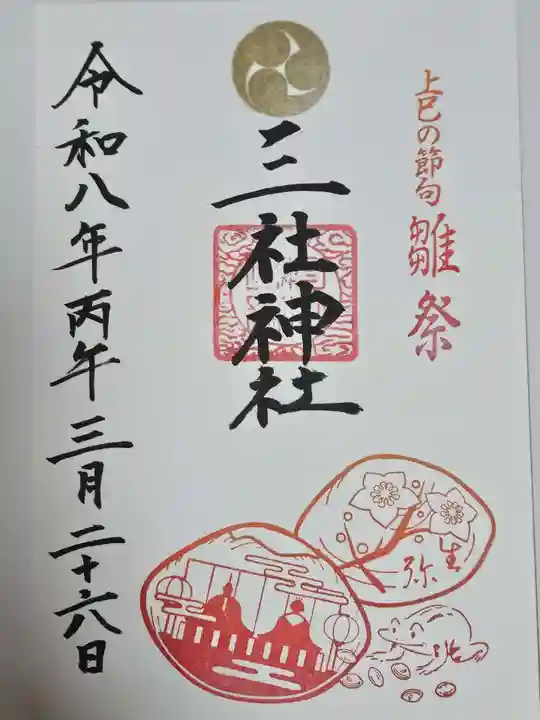 上巳の節句 雛祭
三社神社
令和八年丙午三月二十六日
弥生